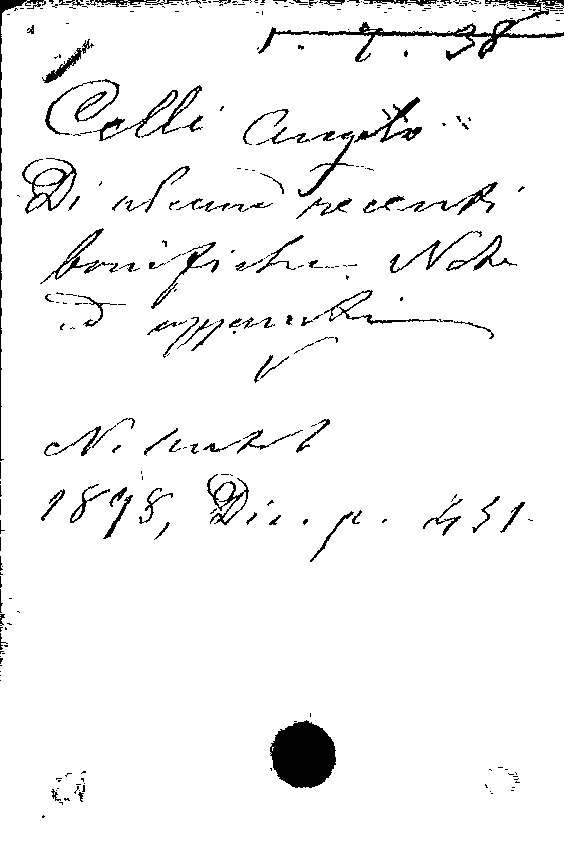 1. 7. 38
Celli Angelo
Di alcune recenti
bonifiche. Note
ed appunti
1878, Dic. p. 451.